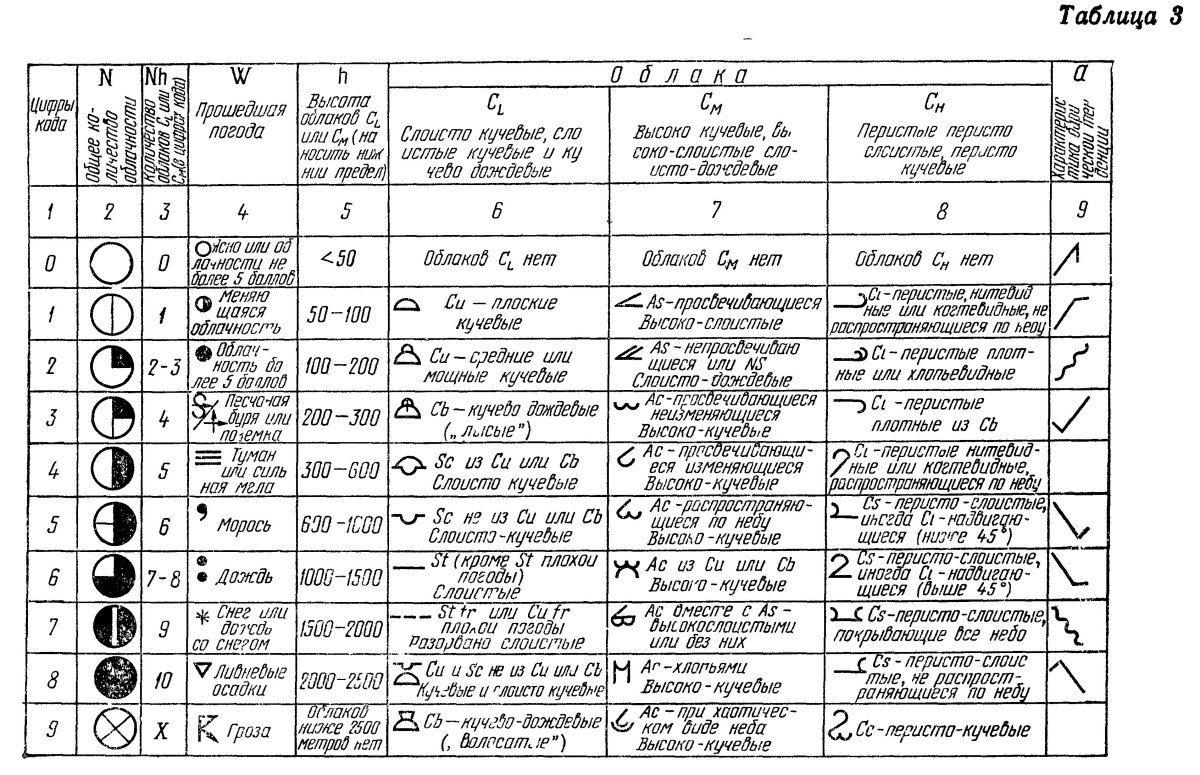 Таблица 3
Цифры
кода
N
Общее ко-
личество
облачности
Nh
Количество
облаков CL или
CM (в цифрах кода)
W
Прошедшая
погода
h
Высота
облаков CL
или CM (на
носить ниж
нии предел)
Облака
CL
Слоисто кучевые, сло
истые кучевые и ку
чево дождевые
CM
Высоко кучевые, вы
соко-слоистые сло-
исто-дождевые
CH
Перистые перисто
слоистые, перисто
кучевые
a
Характерис
тика бари
ческой тен
денции
1 2 3 4 5 6 7 8 9
0
0
Ясно или об
лачности не
более 5 баллов
<50
Облаков CL нет
Облаков CM нет
Облаков CH нет
1
1
Меняю
щаяся
облачность
50-100
Cu — плоские
кучевые
As-просвечивающиеся
Высоко-слоистые
Ci-перистые, нитевид
ные или когтевидные, не
распространяющиеся по небу
2
2-3
Облач-
ность бо
лее 5 баллов
100-200
Cu — средние или
мощные кучевые
As - непросвечиваю
щиеся или NS
Слоисто-дождевые
Ci - перистые плот-
ные или хлопьевидные
3
4
Песчаная
буря или
поземка
200-300
Cb — кучево дождевые
(„лысые")
Ac-просвечивающиеся
неизменяющиеся
Высоко-кучевые
Ci - перистые
плотные из Cb
4
5
Туман
или силь
ная мгла
300-600
Sc из Cu или Cb
Слоисто кучевые
Ac - просвечивающи-
еся изменяющиеся
Высоко-кучевые
Ci-перистые нитевид-
ные или когтевидные,
распространяющиеся по небу
5
6
Морось
600-1000
Sc не из Cu или Cb
Слоисто-кучевые
Ac - распространяю-
щиеся по небу
Высоко-кучевые
Cs - перисто-слоистые,
иногда Ci-надвигаю-
щиеся (ниже 45°)
6
7-8
Дождь
1000-1500
St (кроме St плохои
погоды)
Слоистые
Ac из Cu или Cb
Высоко-кучевые
Cs-перисто-слоистые,
иногда Ci-надвигаю-
щиеся (выше 45°)
7
9
Снег или
дождь
со снегом
1500-2000
St fr или Cu fr
плохои погоды
Разорвано слоистые
Ac вместе с As -
высокослоистыми
или без них
Cs-перисто-слоистые,
покрывающие все небо
8
10
Ливневые
осадки
2000-2500
Cu и Sc не из Cu или Cb
Кучевые и слоисто кучевые
Ac-хлопьями
Высоко-кучевые
Cs - перисто-слоис
тые, не распрост-
раняющиеся по небу
9
X
Гроза
Облаков
ниже 2500
метров нет
Cb — кучево-дождевые
(„Волосатые")
Ac - при хаотичес-
ком виде неба
Высоко-кучевые
Cc-перисто-кучевые